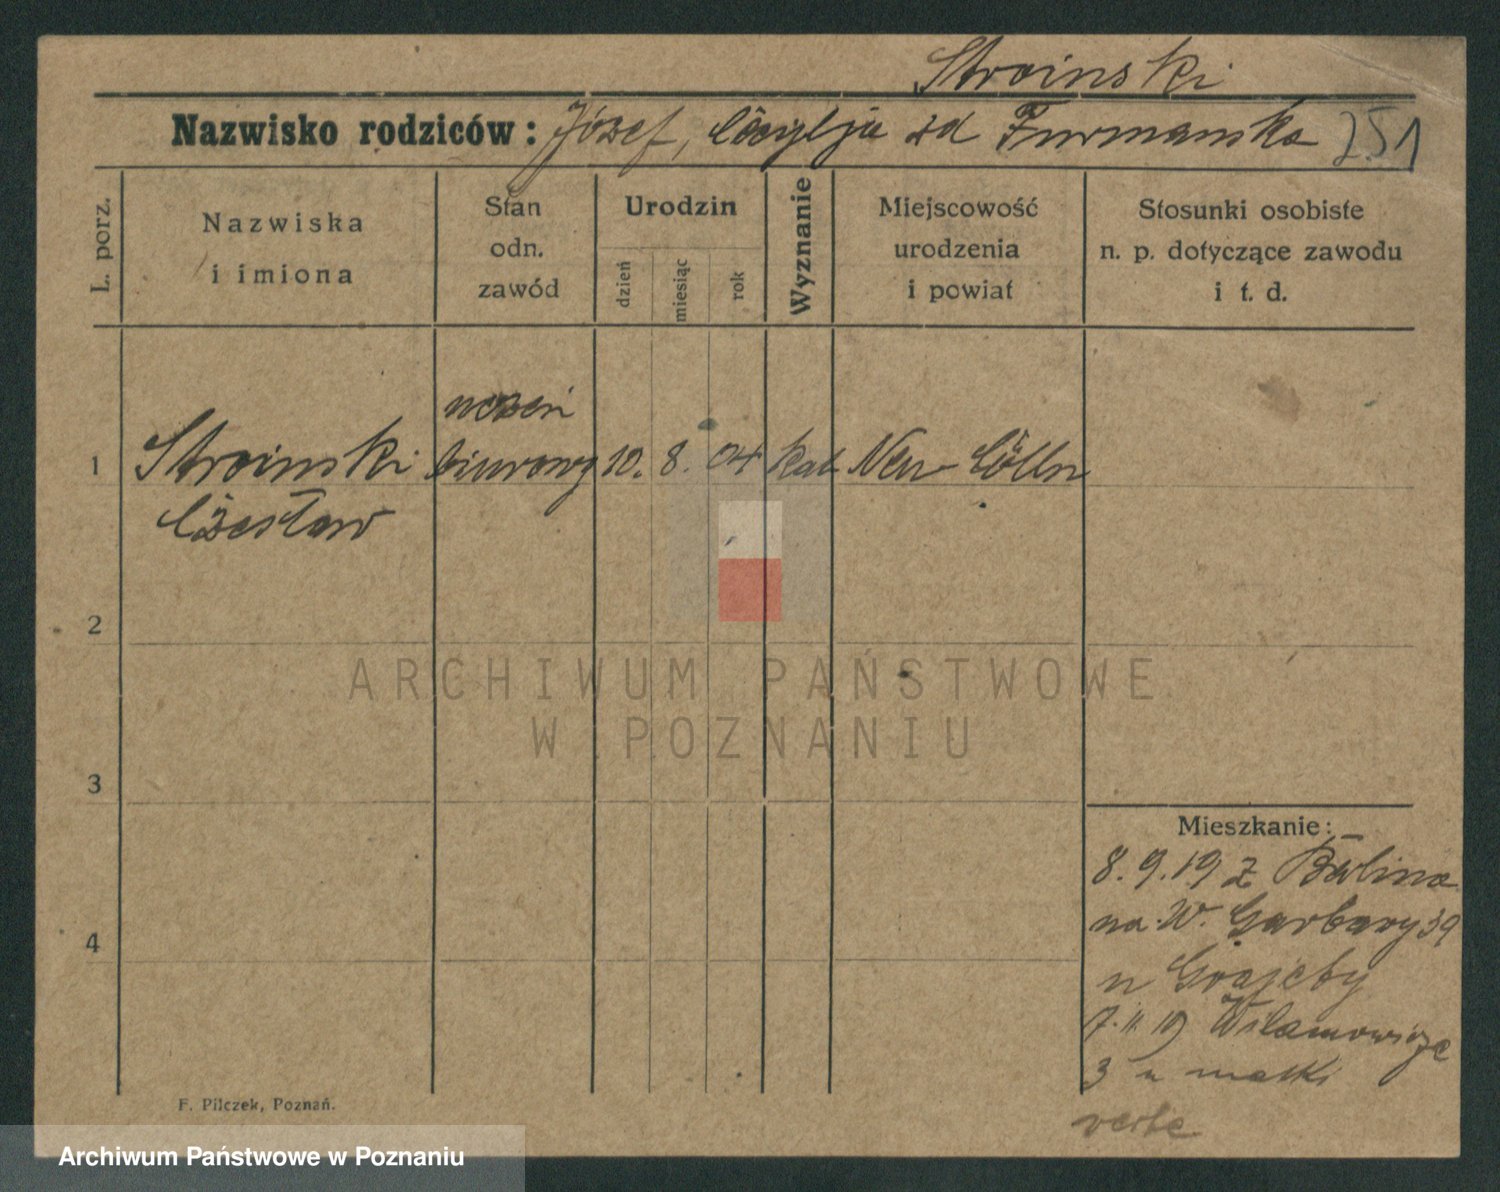 Stroinski
Nazwisko rodziców: Józef, Cäcylja zd Furmanska 251
L. porz.
Nazwiska
i imiona
Stan
odn.
zawód
Urodzin
dzień
miesiąc
rok
Wyznanie
Miejscowość
urodzenia
i powiat
Stosunki osobiste
n. p. dotyczące zawodu
i t. d.
1 Stroinski uczeń biurowy 10. 8. 04 kat Neu-Cölln
Czesław
2
3
4
Mieszkanie:
8.9.19 z Berlina
na W. Garbary 39
u
7.11.19 Wilamowicze
3 u matki
F. Pilczek, Poznań.
ARCHIWUM PAŃSTWOWE
W POZNANIU
Archiwum Państwowe w Poznaniu